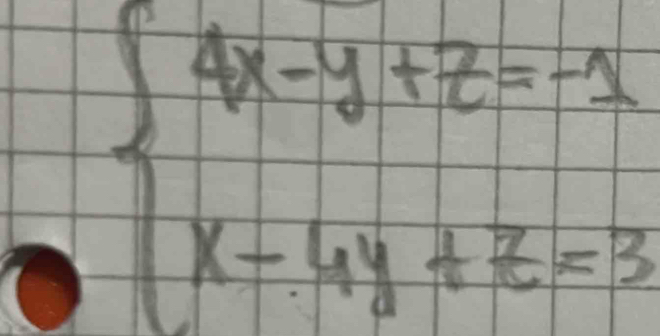 4x-y+z=-1
x-4y+z=3